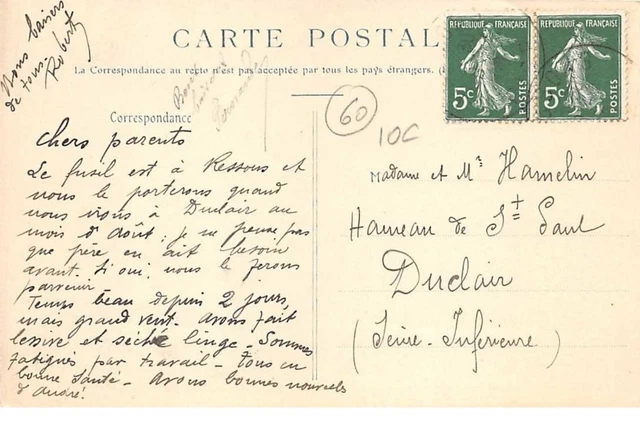 Nous baisers
de tous.
Robert
CARTE POSTAL
La Correspondance au recto n'est pas acceptée par tous les pays étrangers.
REPUBLIQUE FRANÇAISE
5c
POSTES
REPUBLIQUE FRANÇAISE
5c
POSTES
60
10C
Correspondance
Chers parents
Le fusil est à Ressons et
nous le porterons quand
nous irons à Duclair au
mois d'août; je ne pense pas
que père en ait besoin
avant. Si oui nous le ferons
parvenir
Temps beau depuis 2 jours,
mais grand vent. Avons fait
lessive et séché linge - Sommes
fatigués par travail - tous en
bonne santé - Avons bonnes nouvels
d'André.
Madame et Mr Hamelin
Hameau de St Paul
Duclair
(Seine-Inférieure)